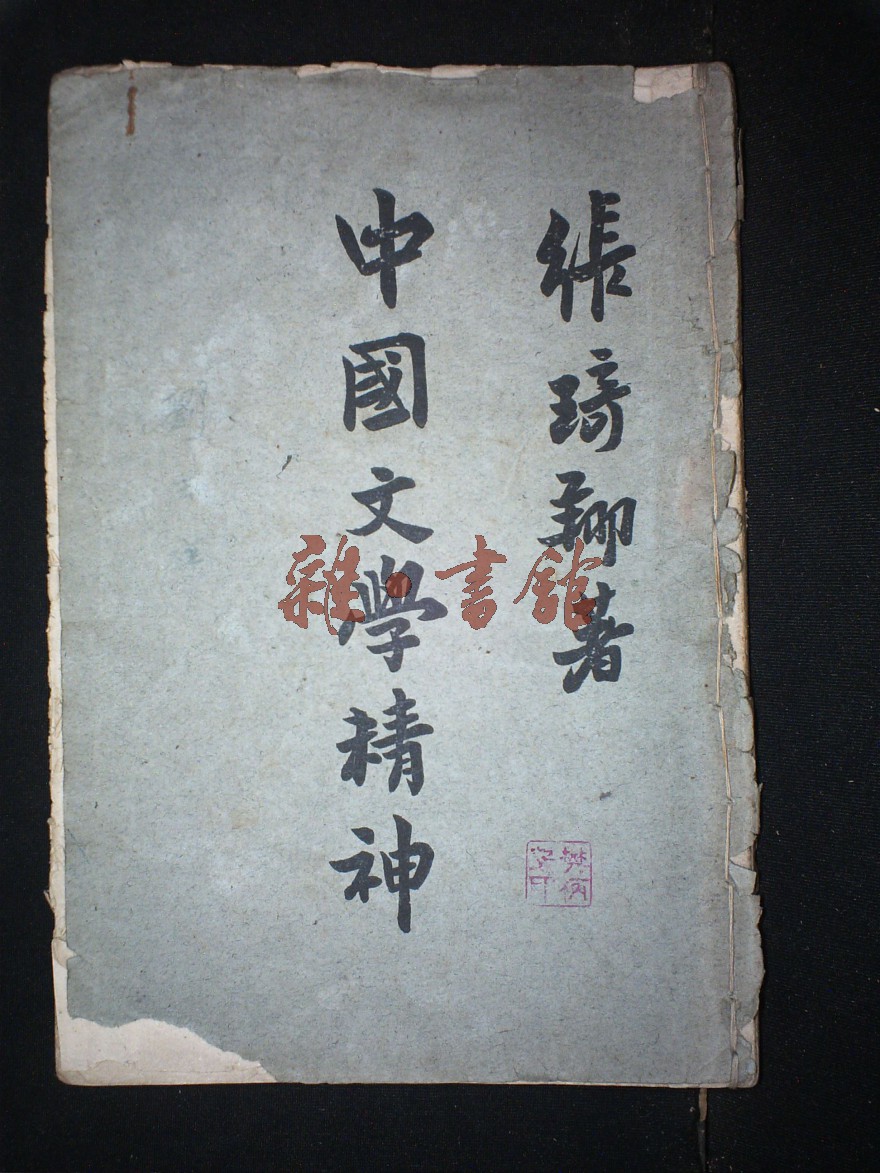 張琦翔著
中國文學精神
雜·書館